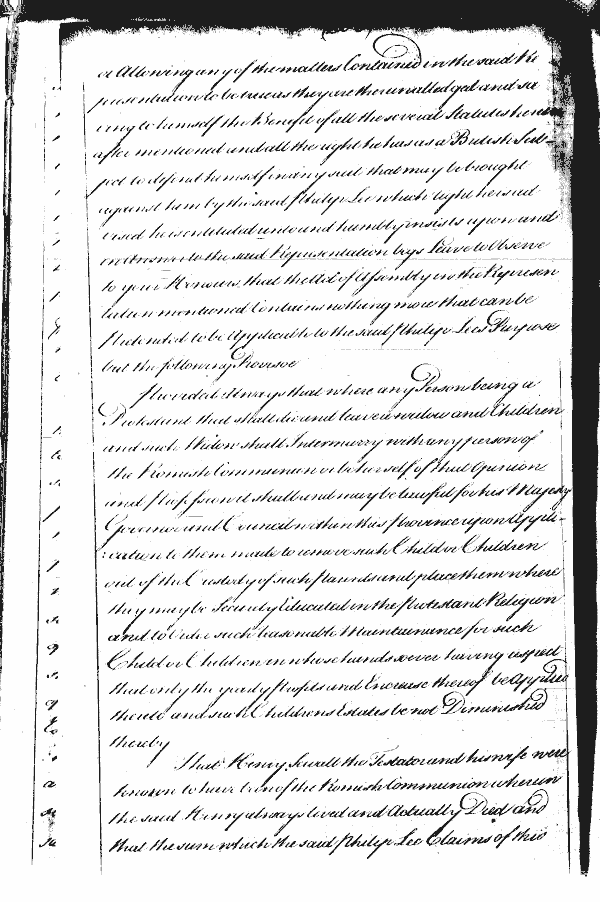 or Allowing any of the matters Contained in the said Re
presentation to be true as they are therein alledged and sa
ving to himself the Benefit of all the several Statutes herein
after mentioned and all the right he has as a British Sub-
ject to defend himself in any suit that may be brought
against him by the said Philip Lee which right he is ad
vised he is entituled unto and humbly insists upon and
in Answer to the said Representation begs Leave to Observe
to your Honours, that the Act of Assembly in the Represen
tation mentioned Contains nothing more that can be
Pretended to be Applicable to the said Philip Lees Purpose
but the following Provisoe
Provided Always that where any Person being a
Protestant that shall die and leave a widow and Children
and such Widow shall Intermarry with any person of
the Romish Communion or be herself of that Opinion
and Profession it shall and may be lawful for his Majesty
Governor and Council within this Province upon Appli-
:cation to them made to remove such Child or Children
out of the Custody of such Parents and place them where
they may be Securely Educated in the Protestant Religion
and to Order such reasonable Maintainance for such
Child or Children in whose hands soever having respect
that only the yearly Profits and Encrease thereof be Applied
thereto and such Childrens Estates be not Diminished
thereby
That Henry Sewall the Testator and his wife were
known to have been of the Romish Communion wherein
the said Henry always lived and Actually Died and
that the sum which the said Philip Lee Claims of this